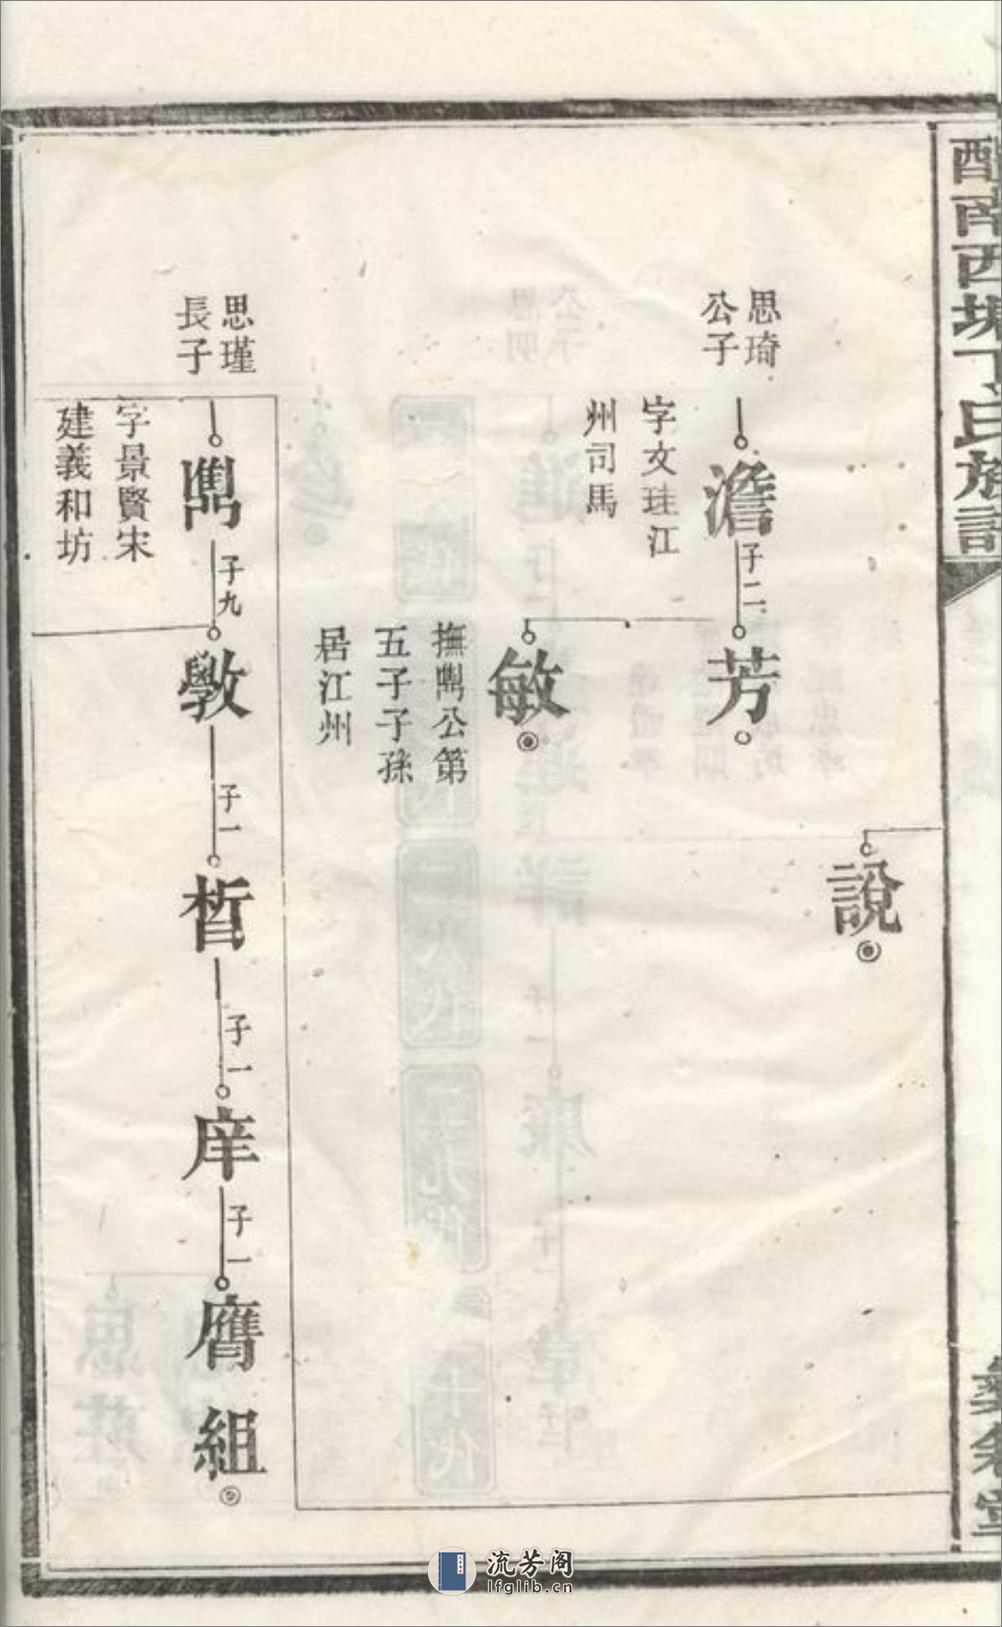 醴南西塘丁氏族譜
說
思琦
公子
澹
字文珪江
州司馬
子二
芳
敏
撫鼎公第
五子子孫
居江州
思瑾
長子
雋
字景賢宋
建義和坊
子九
斆
子一
晳
子一
庠
子一
膺組
流芳阁
lfglib.cn